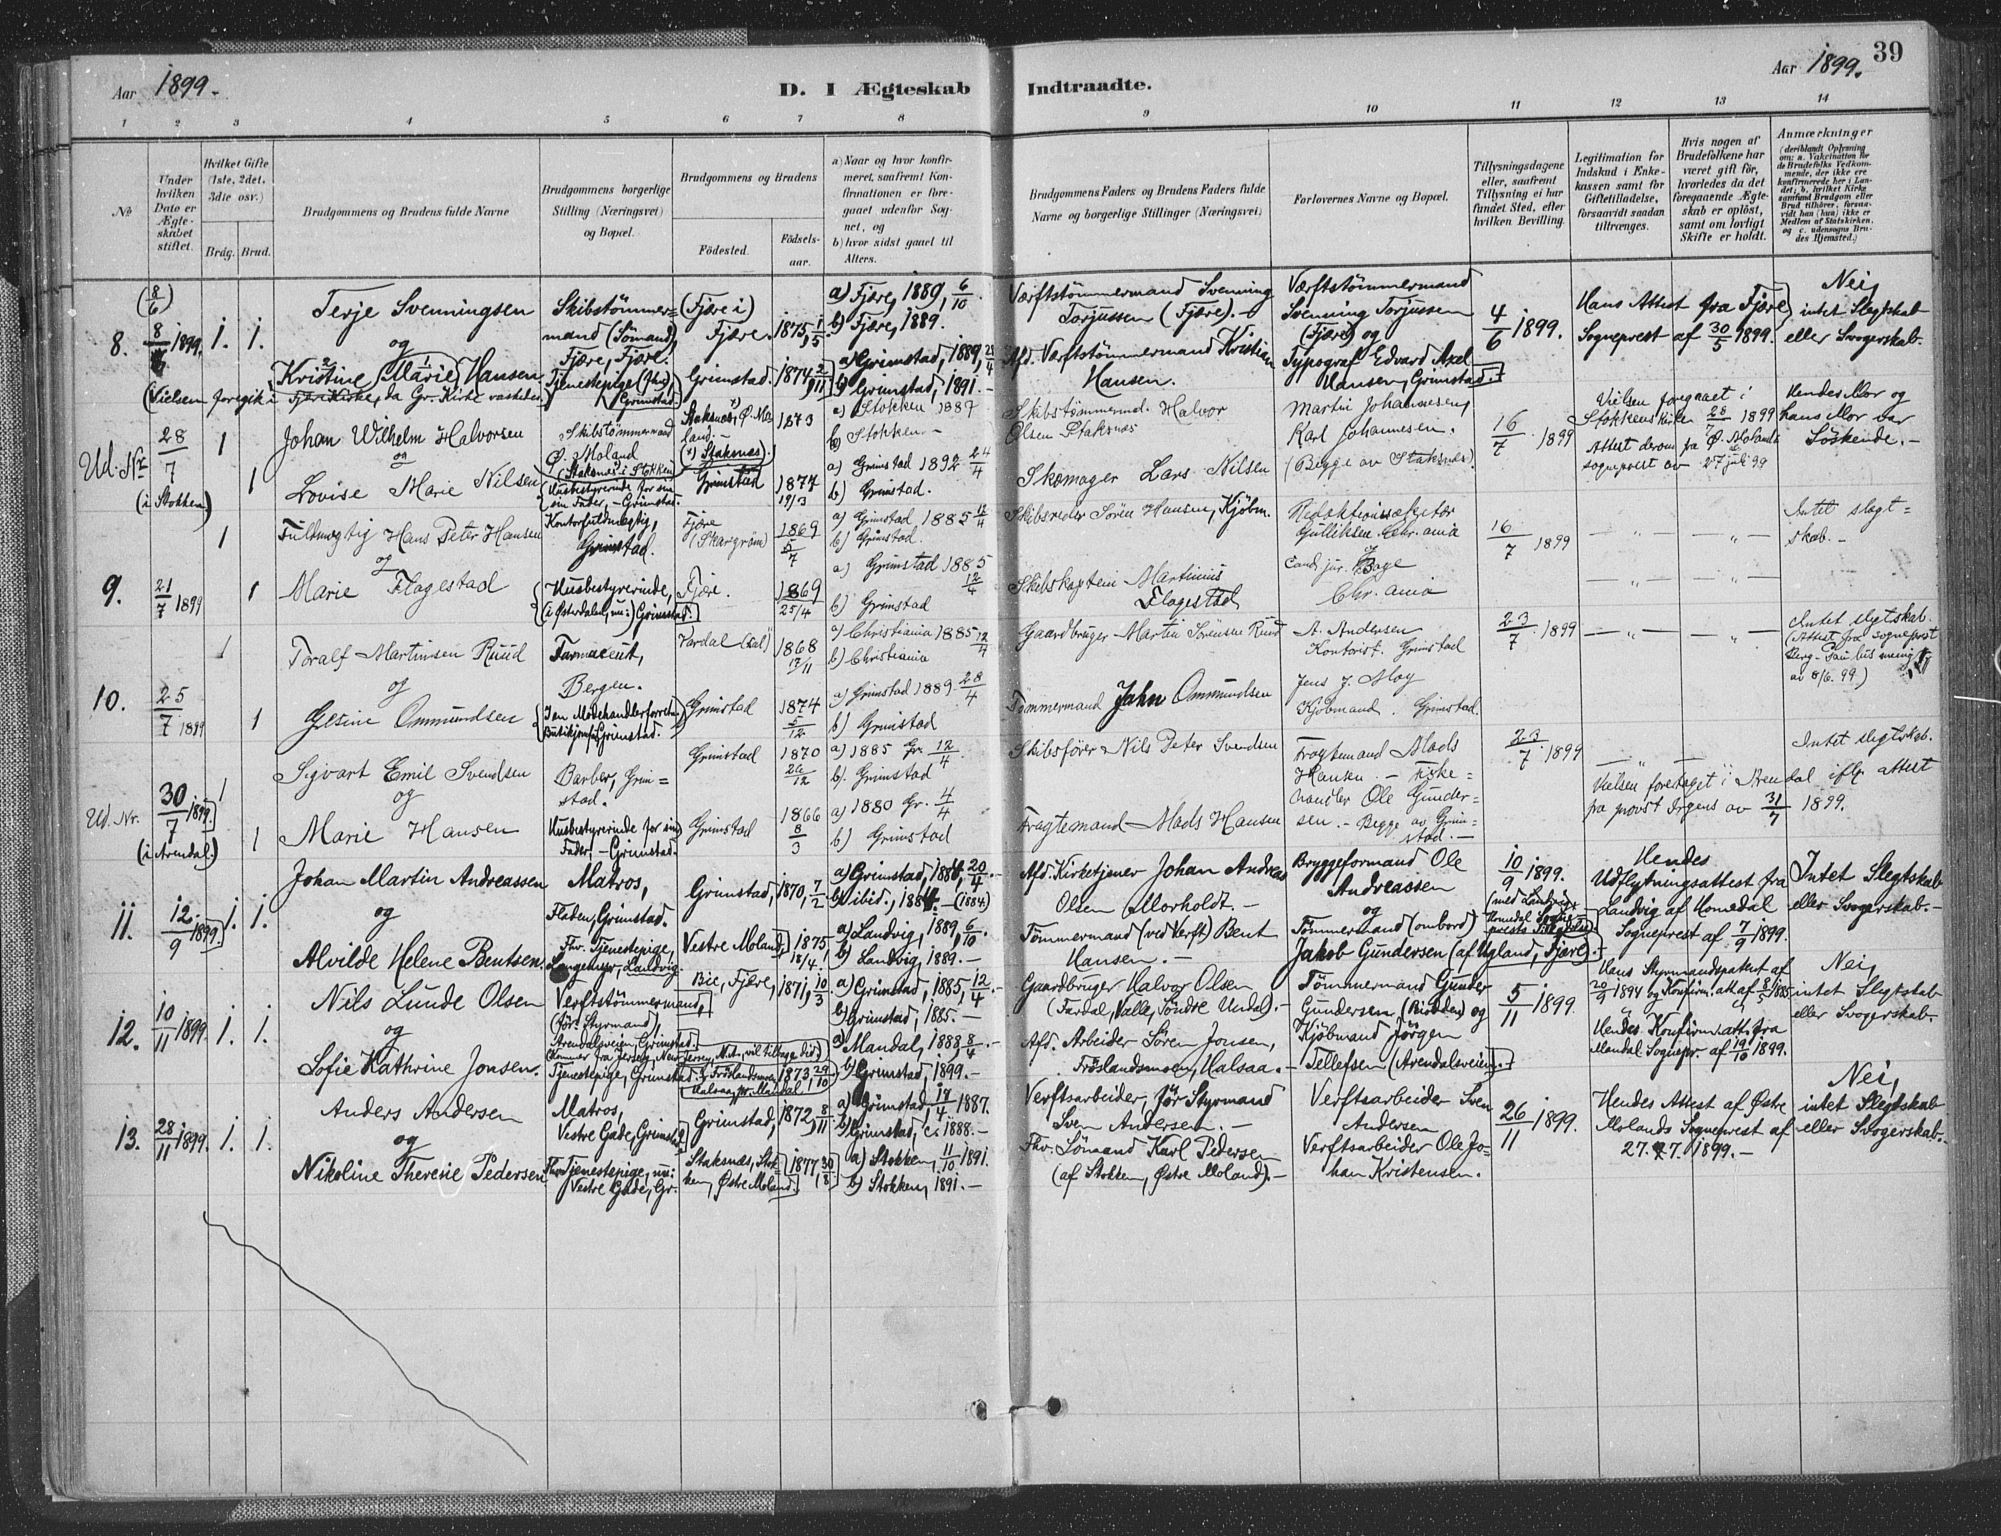 Aar 1899.
D. I Ægteskab Indtraadte.
Aar 1899. 39
1 2 3 4 5 6 7 8 9 10 11 12 13 14
№
Under hvilken Dato er Ægteskabet stiftet.
Hvilket Gifte (1ste, 2det, 3die osv.)
Brdg. Brud.
Brudgommens og Brudens fulde Navne
Brudgommens borgerlige Stilling (Næringsvei) og Bopæl.
Brudgommens og Brudens
Födested. Födsels-aar.
a) Naar og hvor konfirmeret, saafremt Konfirmationen er foregaaet udenfor Sognet, og
b) hvor sidst gaaet til Alters.
Brudgommens Faders og Brudens Faders fulde Navne og borgerlige Stillinger (Næringsvei)
Forlovernes Navne og Bopæl.
Tillysningsdagene eller, saafremt Tillysning ei har fundet Sted, efter hvilken Bevilling.
Legitimation for Indskud i Enkekassen samt for Giftetilladelse, forsaavidt saadan tiltrænges.
Hvis nogen af Brudefolkene har været gift för, hvorledes da det foregaaende Ægteskab er oplöst, samt om lovligt Skifte er holdt.
Anmærkninger (deriblandt Oplysning om: a. Vakcination for de Brudefolks Vedkommende, der ikke ere konfirmerede her i Landet; b. hvilket Kirkesamfund Brudgom eller Brud tilhörer, forsaavidt han (hun) ikke er Medlem af Statskirken, og c. udensogns Brudes Hjemsted.)
8. (8/6) 8/6 1899. 1. 1.
Terje Svenningsen
og
Kristine Marie Hansen
Skibstömmermand (Sömand), Fjære, Fjære.
Tjenestepige (fhv.) Grimstad.
(Fjære i) Fjære, 1875, 1/5
Grimstad. 1874, 2/11
a) Fjære, 1889, 6/10.
b) Fjære, 1889.
a) Grimstad, 1889, 21/4
b) Grimstad, 1891.
Værftstömmermand Svenning Torjussen (Fjære).
Afd. Værftstömmermand Kristian Hansen.
Værftstömmermand Svenning Torjussen (Fjære) og
Typograf Edvard Axel Hansen, Grimstad.
4/6 1899.
Hans Attest fra Fjære Sogneprest af 30/5 1899.
Nei, intet Slegtskab eller Svogerskab.
(Vielsen foregik i Fjære Kirke, da Gr. Kirke vaskedes.)
Ud. Nr. 28/7 (i Stokken) 1 1
Johan Wilhelm Halvorsen
og
Lovise Marie Nilsen
Skibstömmermand Ö. Moland (Staksnæs i Stokken)
Husbestyrerinde for sin Fader, Grimstad.
Staksnæs, Ö. Moland. 1873
Grimstad 1877 19/3
a) Stokken 1887
b) Stokken
a) Grimstad 1892 24/4
b) Grimstad.
Skibstømmermd. Halvor Olsen Staksnæs
Skomager Lars Nilsen
Martin Johannesen,
Karl Johannesen.
(Begge av Staksnæs).
16/7 1899
Vielsen foregaaet i Stokkens Kirke 28/7 1899
Attest derom fra Ö. Molands sogneprest av 27 juli 99
Hendes Mor og hans Mor var Söskende.
9. 21/7 1899 1 1
Fuldmægtig Hans Peter Hansen
og
Marie Flagestad
Kontorfuldmægtig, Grimstad.
Husbestyrerinde, (i Østerdalen, nu:) Grimstad.
Fjære (Skargrøm) 1869 5/7
Fjære. 1869 25/4
a) Grimstad 1885 12/4
b) Grimstad.
a) Grimstad 1885 12/4
b) Grimstad
Skibsreder Sören Hansen, Kjøbm.
Skibskaptein Martinius Flagestad
Redaktionssekretær Gulliksen Chr.ania
og
Cand. jur. Bage Chr.ania
16/7 1899
Intet slægtskab.
10. 25/7 1899 1 1
Toralf Martinsen Ruud
og
Gesine Ommundsen
Farmaceut, Bergen.
I en Modehandlerforretn. Grimstad.
Vardal 1868 13/11
Grimstad 1874 5/12
a) Christiania 1885 12/4
b) Christiania
a) Grimstad 1889 28/4
b) Grimstad
Gaardbruger Martin Sörensen Ruud
Tömmermand Jahn Ommundsen
A. Andersen Kontorist. Grimstad
Jens J. Moy Kjöbmand. Grimstad.
23/7 1899
Intet slegtskab.
(Attest fra Sogneprest av 8/6. 99)
Ud. Nr. 30/7 1899. (i Arendal.) 1 1
Sigvart Emil Svendsen
og
Marie Hansen
Barber, Grimstad.
Husbestyrerinde for sin Fader. Grimstad.
Grimstad 1870 26/12
Grimstad 1866 8/3
a) 1885 Gr. 12/4
b) Grimstad
a) 1880 Gr. 4/4
b) Grimstad
Skibsförer Nils Peter Svendsen
Fragtemand Mads Hansen
Fragtemand Mads Hansen. Fiskehandler Ole Gundersen. Begge av Grimstad.
23/7 1899
Vielsen foretaget i Arendal iflg. attest fra provst Irgens av 31/7 1899.
Intet slegtskab.
11. 12/9 1899. 1. 1.
Johan Martin Andreassen
og
Alvilde Helene Bentsen.
Matros, Fladen, Grimstad.
Fhv. Tjenestepige, Landvig.
Grimstad, 1870, 7/2
Vestre Moland, 1875, 18/4.
a) Grimstad, 1884, 20/4.
b) ibid., 1884. (1884)
a) Landvig, 1889, 6/10.
b) Landvig, 1889.
Afd. Kirketjener Johan Andreas Olsen Morholdt.
Tömmermand (ved Verft) Bent Hansen.
Bryggeformand Ole Andreassen
og
Tömmermand (ombord) Jakob Gundersen (af Ugland, Fjære).
10/9 1899.
Hendes Udflytningsattest fra Landvig af Homedal Sogneprest af 7/9 1899.
Intet Slegtskab eller Svogerskab.
12. 10/11 1899. 1. 1.
Nils Lunde Olsen
og
Sofie Kathrine Jonsen.
Verftstömmermand, (för: Styrmand), Arendalsveien, Grimstad.
Tjenestepige, Grimstad.
Bie, Fjære, 1871, 10/3
Fröslandsmoen, Halsaa pr. Mandal. 1873, 29/10
a) Grimstad, 1885, 12/4.
b) Grimstad, 1885.
a) Mandal, 1888, 8/4.
b) Grimstad, 1899.
Gaardbruger Halvor Olsen (Fardal, Valle, Söndre Undal).
Afd. Arbeider Sören Jonsen, Fröslandsmoen, Halsaa.
Tömmermand Gunder Gundersen, (Bibben) og
Kjöbmand Jörgen Tellefsen (Arendalsveien).
5/11 1899.
Hans Styrmandspatent af 20/9 1894 og Konfirm. att. af 8/5 1885
Hendes Konfirm. att. fra Mandal Sognepr. af 19/10 1899.
Nei, intet Slegtskab eller Svogerskab.
13. 28/11 1899. 1. 1.
Anders Andersen
og
Nikoline Therese Pedersen
Matros, Vestre Gade, Grimstad
Fhv. Tjenestepige, nu: Vestre Gade, Gr.
Grimstad, 1872, 8/11
Staksnæs, Stokken, Östre Moland. 1877, 30/8
a) Grimstad 18/4 1887.
b) Grimstad, c. 1888.
a) Stokken, 11/10 1891.
b) Stokken, 1891.
Verftsarbeider, för Styrmand Sven Andersen.
Fhv. Sömand Karl Pedersen (af Stokken, Östre Moland).
Verftsarbeider Sven Andersen
Verftsarbeider Ole Johan Kristensen.
26/11 1899.
Hendes Attest af Östre Molands Sogneprest af 27. 7. 1899.
Nei, intet Slegtskab eller Svogerskab.